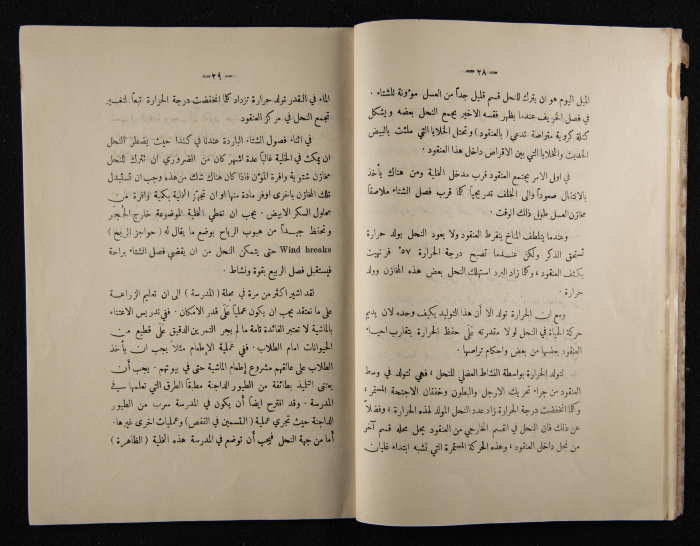 — ٢٨ —
الميل اليوم هو ان يترك للنحل قسم قليل جداً من العسل مؤونة للشتاء .
في فصل الخريف عندما يظهر فقسه الاخير يجمع النحل بعضه ويشكل
كتلة كروية متراصة تدعى ( بالعنقود ) وتحتل الخلايا التي ملئت بالبيض
الحديث والخلايا التي بين الاقراص داخل هذا العنقود .
في اول الامر يجتمع العنقود قرب مدخل الخلية ومن هناك يأخذ
بالانتقال صعوداً والى الخلف تدريجياً كلما قرب فصل الشتاء ملاصقاً
مخازن العسل طول ذلك الوقت .
وعندما يتلطف المناخ ينفرط العنقود ولا يعود النحل يولد حرارة
تستحق الذكر ولكن عندما تصبح درجة الحرارة ٥٧° فرنهيت
يكثف العنقود ، وكلما زاد البرد استهلك النحل بعض هذه المخازن وولد
حرارة .
ومع ان الحرارة تولد الا أن هذا التوليد بكيف وحده لان يديم
حركة الحياة في النحل لولا مقدرته على حفظ الحرارة بتقارب احياء
العنقود بعضها من بعض واحكام تراصها .
تتولد الحرارة بواسطة النشاط العضلي للنحل ، فهي تتولد في وسط
العنقود من جراء تحريك الارجل والبطون وخفقان الاجنحة المستمر ،
وكلما انخفضت درجة الحرارة زاد عدد النحل المولد لهذه الحرارة ، وفضلاً
عن ذلك فان النحل في القسم الخارجي من العنقود يحل محله قسم آخر
من نحل داخل العنقود ، وهذه الحركة المستمرة التي تشبه ابتداء غليان
— ٢٩ —
الماء في القدر تولد حرارة تزداد كلما انخفضت درجة الحرارة تبعاً لتغيير
تجمع النحل في مركز العنقود
في اثناء فصول الشتاء الباردة عندنا في كندا حيث يضطر النحل
ان يمكث في الخلية غالباً عدة اشهر كان من الضروري ان تترك للنحل
مخازن شتوية وافرة المؤن فاذا كان هناك شك من هذه وجب ان تستبدل
تلك المخازن باخرى اوفر مادة منها او ان تجهز الخلية بكمية وافرة من
محلول السكر الابيض . يجب ان تغطي الخلية الموضوعة خارج الحُجَر
وتحفظ جيداً من هبوب الرياح بوضع ما يقال له ( حواجز الريح )
Wind breaks حتى يتمكن النحل من ان يقضي فصل الشتاء براحة
فيستقبل فصل الربيع بقوة ونشاط .
لقد اشير اكثر من مرة في مجلة ( المدرسة ) الى ان تعليم الزراعة
على ما نعتقد يجب ان يكون عملياً على قدر الامكان . ففي تدريس الاعتناء
بالماشية لا تعتبر الفائدة تامة ما لم يجر التمرين الدقيق على قطيع من
الحيوانات امام الطلاب . ففي عملية الإطعام مثلاً يجب ان يأخذ
الطلاب على عاتقهم مشروع إطعام الماشية حتى في بيوتهم . يجب أن
يعتني التلميذ بطائفة من الطيور الداجنة مطبقاً الطرق التي تعلمها في
المدرسة . وقد اقترح ايضاً أن يكون في المدرسة سرب من الطيور
الداجنة حيث تجري عملية ( التسمين في القفص ) وعمليات اخرى غيرها .
أما من جهة النحل فيجب أن توضع في المدرسة هذه الخلية ( الظاهرة )